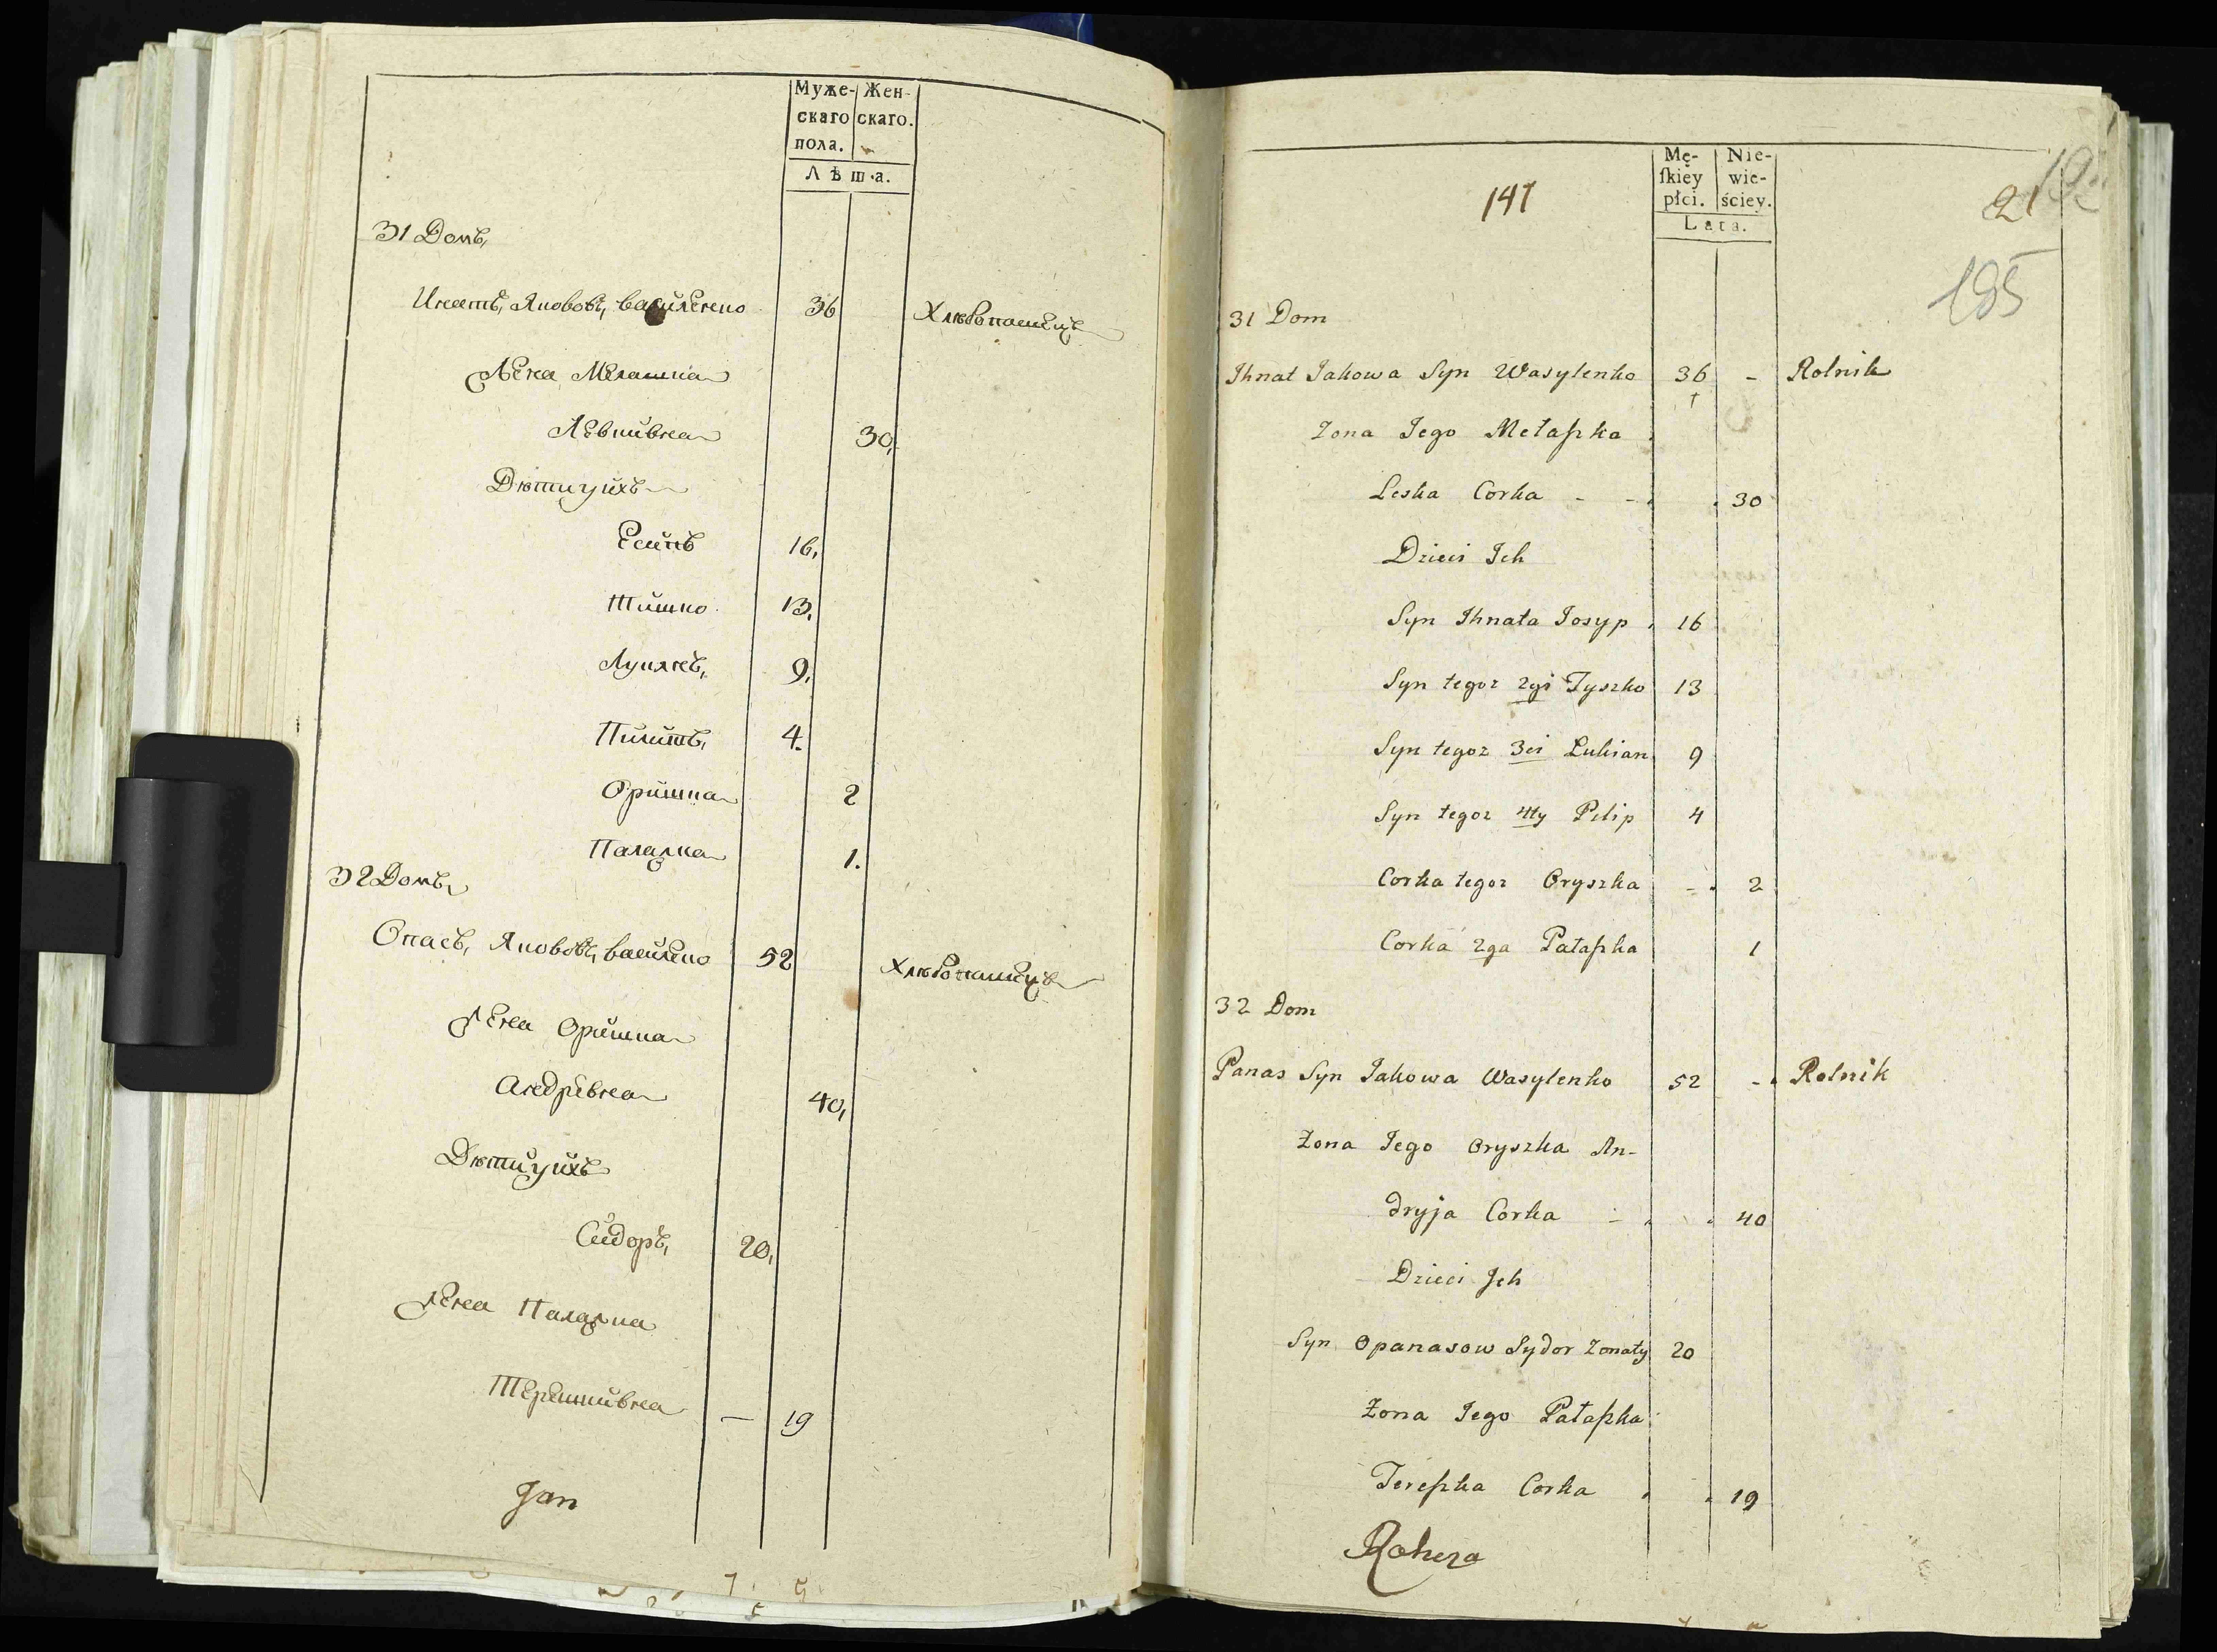 Муже- Жен-
скаго скаго.
пола.
Лѣта.
31 Домъ,
Игнатъ, Якововъ, василенко 36 Хлѣбопашецъ
Жена Мелашка
Левкивна 30,
Дѣти ихъ
Есипъ 16,
Тишко 13.
Лукянъ, 9,
Пилипъ, 4.
Оришка 2
Палажка 1.
32 Домъ,
Опасъ, Якововъ, василенко 52 Хлѣбопашецъ
Жена Оришка
Андрѣвна 40,
Дѣти ихъ
Сидоръ, 20,
Жена Палажка
Терешкивна — 19
Jan
141
Mę- Nie-
skiey wie-
płci. ściey.
Lata.
21
185
31 Dom
Ihnat Jakowa Syn Wasylenko 36 - Rolnik
Zona Jego Melaszka
Leska Corka - - 30
Dzieci Ich
Syn Ihnata Josyp 16
Syn tegoz 2gi Tyszko 13
Syn tegoz 3ci Lukian 9
Syn tegoz 4ty Pilip 4
Corka tegoz Oryszka - 2
Corka 2ga Pałaszka 1
32 Dom
Panas Syn Jakowa Wasylenko 52 - Rolnik
Zona Jego Oryszka An-
dryja Corka - 40
Dzieci Ich
Syn Opanasow Sydor Zonaty 20
Zona Jego Pałaszka
Tereszka Corka 19